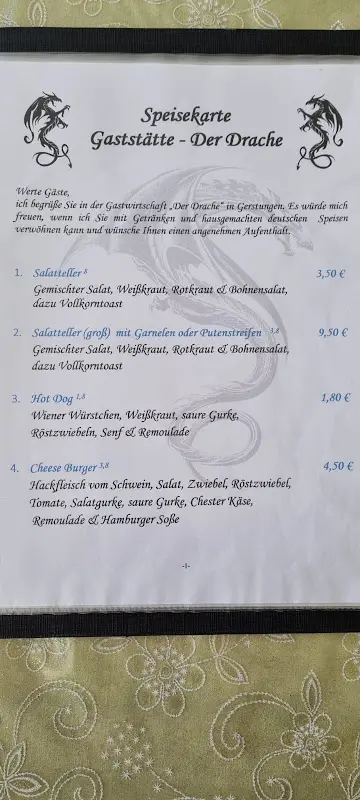 Speisekarte
Gaststätte - Der Drache
Werte Gäste,
ich begrüße Sie in der Gastwirtschaft „Der Drache“ in Gerstungen. Es würde mich
freuen, wenn ich Sie mit Getränken und hausgemachten deutschen Speisen
verwöhnen kann und wünsche Ihnen einen angenehmen Aufenthalt.
1. Salatteller 8 3,50 €
Gemischter Salat, Weißkraut, Rotkraut & Bohnensalat,
dazu Vollkorntoast
2. Salatteller (groß) mit Garnelen oder Putenstreifen 3,8 9,50 €
Gemischter Salat, Weißkraut, Rotkraut & Bohnensalat,
dazu Vollkorntoast
3. Hot Dog 1,8 1,80 €
Wiener Würstchen, Weißkraut, saure Gurke,
Röstzwiebeln, Senf & Remoulade
4. Cheese Burger 3,8 4,50 €
Hackfleisch vom Schwein, Salat, Zwiebel, Röstzwiebel,
Tomate, Salatgurke, saure Gurke, Chester Käse,
Remoulade & Hamburger Soße
-1-